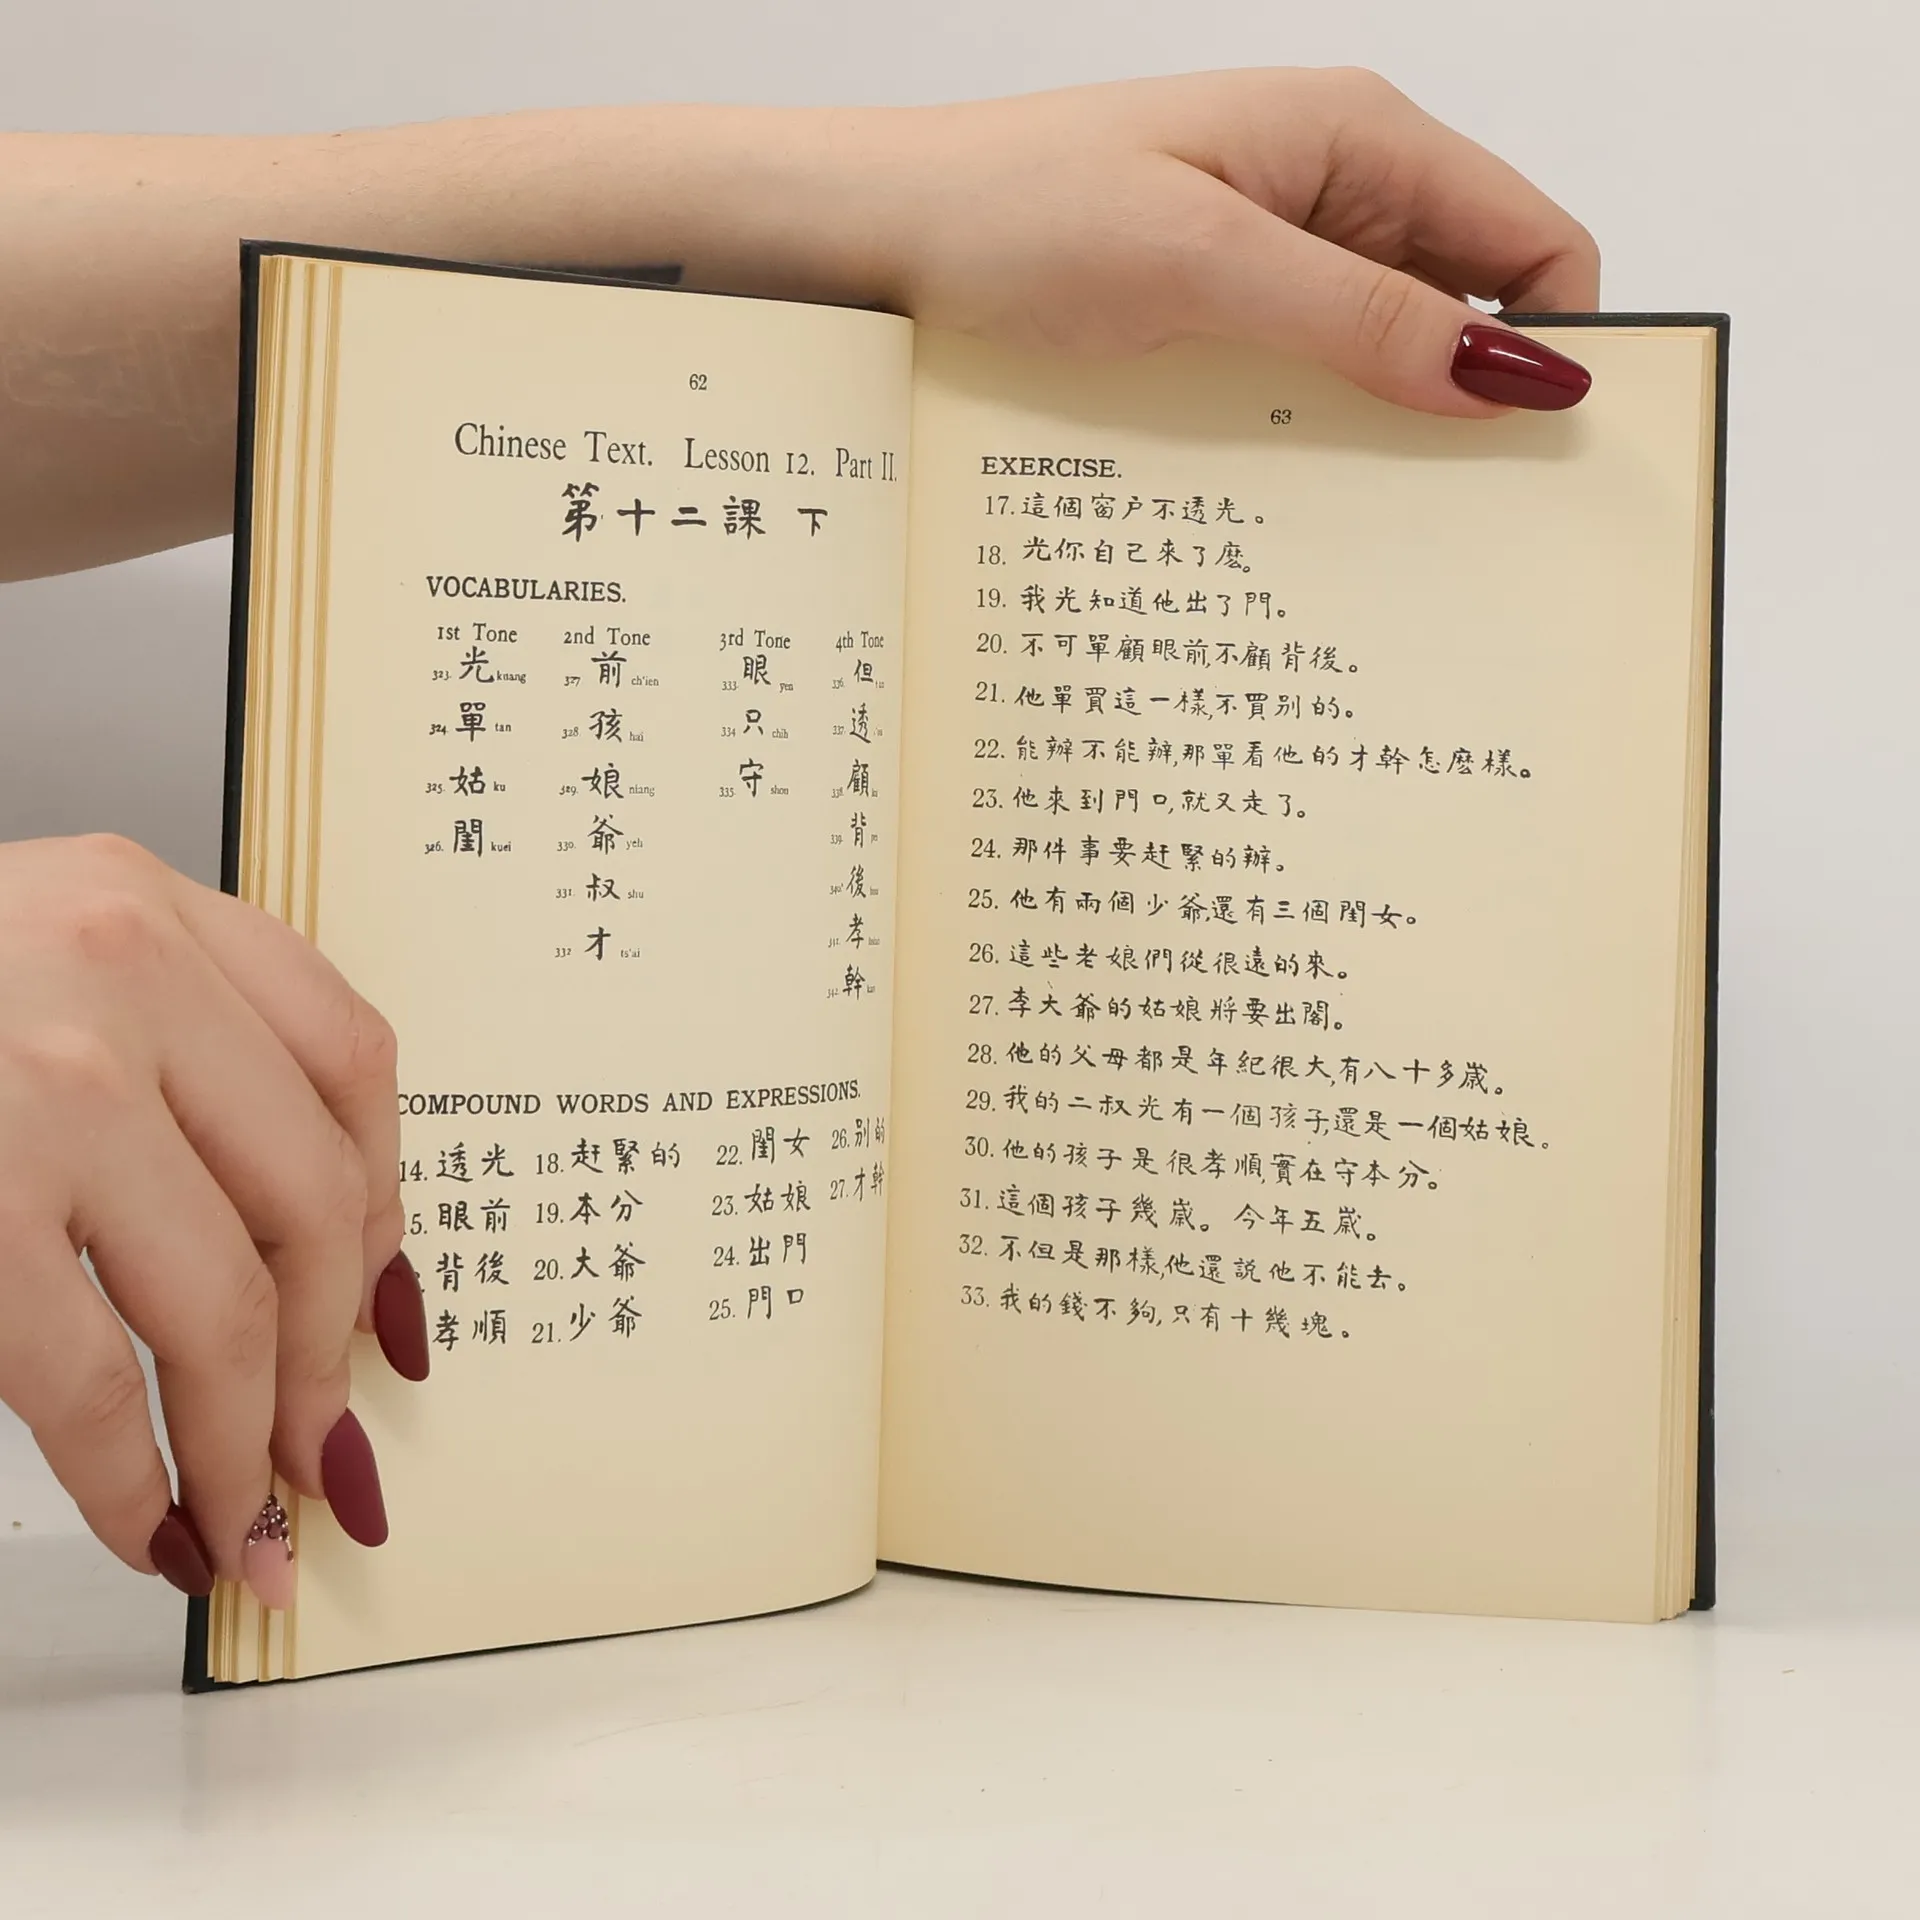 62
Chinese Text. Lesson 12. Part II.
第十二課 下
VOCABULARIES.
1st Tone 2nd Tone 3rd Tone 4th Tone
323. 光 kuang 327 前 ch'ien 333. 眼 yen 336. 但
324. 單 tan 328. 孩 hai 334 只 chih 337. 透
325. 姑 ku 329. 娘 niang 335. 守 shou 338. 顧
326. 閨 kuei 330. 爺 yeh 339. 背
331. 叔 shu 340. 後
332 才 ts'ai 341. 孝
342. 幹
COMPOUND WORDS AND EXPRESSIONS.
14. 透光 18. 赶緊的 22. 閨女 26. 别的
15. 眼前 19. 本分 23. 姑娘 27. 才幹
背後 20. 大爺 24. 出門
孝順 21. 少爺 25. 門口
63
EXERCISE.
17. 這個窗户不透光。
18. 光你自己來了麽。
19. 我光知道他出了門。
20. 不可單顧眼前,不顧背後。
21. 他單買這一樣,不買别的。
22. 能辦不能辦,那單看他的才幹怎麽樣。
23. 他來到門口,就又走了。
24. 那件事要赶緊的辦。
25. 他有兩個少爺,還有三個閨女。
26. 這些老娘們從很遠的來。
27. 李大爺的姑娘將要出閣。
28. 他的父母都是年紀很大,有八十多歲。
29. 我的二叔光有一個孩子,還是一個姑娘。
30. 他的孩子是很孝順,實在守本分。
31. 這個孩子幾歲。今年五歲。
32. 不但是那樣,他還說他不能去。
33. 我的錢不夠,只有十幾塊。